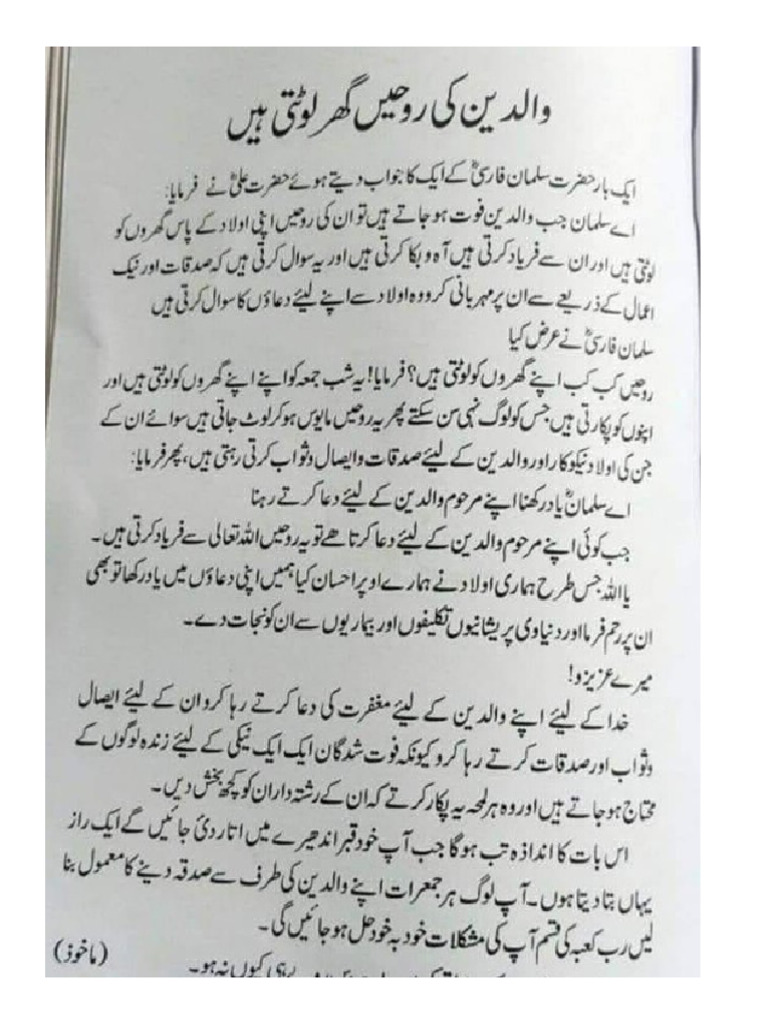 والدین کی روحیں گھر لوٹتی ہیں
ایک بار حضرت سلمان فارسیؓ کے ایک کا جواب دیتے ہوئے حضرت علیؓ نے فرمایا:
اے سلمان جب والدین فوت ہو جاتے ہیں تو ان کی روحیں اپنی اولاد کے پاس گھروں کو
لوٹتی ہیں اور ان سے فریاد کرتی ہیں آہ و بکا کرتی ہیں اور یہ سوال کرتی ہیں کہ صدقات اور نیک
اعمال کے ذریعے سے ان پر مہربانی کرو وہ اولاد سے اپنے لیئے دعاؤں کا سوال کرتی ہیں
سلمان فارسیؓ نے عرض کیا
روحیں کب کب اپنے گھروں کو لوٹتی ہیں؟ فرمایا! یہ شب جمعہ کو اپنے اپنے گھروں کو لوٹتی ہیں اور
اپنوں کو پکارتی ہیں جس کو لوگ نہی سن سکتے پھر یہ روحیں مایوس ہو کر لوٹ جاتی ہیں سوائے ان کے
جن کی اولاد نیکو کار اور والدین کے لیئے صدقات و ایصال وثواب کرتی رہتی ہیں، پھر فرمایا:
اے سلمانؓ یاد رکھنا اپنے مرحوم والدین کے لیئے دعا کرتے رہنا
جب کوئی اپنے مرحوم والدین کے لیئے دعا کرتا ھے تو یہ روحیں اللہ تعالی سے فریاد کرتی ہیں۔
یا اللہ جس طرح ہماری اولاد نے ہمارے اوپر احسان کیا ہمیں اپنی دعاؤں میں یاد رکھا تو بھی
ان پر رحم فرما اور دنیاوی پریشانیوں تکلیفوں اور بیماریوں سے ان کو نجات دے۔
میرے عزیزو!
خدا کے لیئے اپنے والدین کے لیئے مغفرت کی دعا کرتے رہا کرو ان کے لیئے ایصال
وثواب اور صدقات کرتے رہا کرو کیونکہ فوت شدگان ایک ایک نیکی کے لیئے زندہ لوگوں کے
محتاج ہو جاتے ہیں اور وہ ہر لمحہ یہ پکار کرتے کہ ان کے رشتہ داران کو کچھ بخش دیں۔
اس بات کا اندازہ تب ہوگا جب آپ خود قبر اندھیرے میں اتار دئ جائیں گے ایک راز
یہاں بتا دیتا ہوں۔ آپ لوگ ہر جمعرات اپنے والدین کی طرف سے صدقہ دینے کا معمول بنا
لیں رب کعبہ کی قسم آپ کی مشکلات خود بہ خود حل ہو جائیں گی۔
(ماخوذ)
ہی کیوں نہ ہو۔